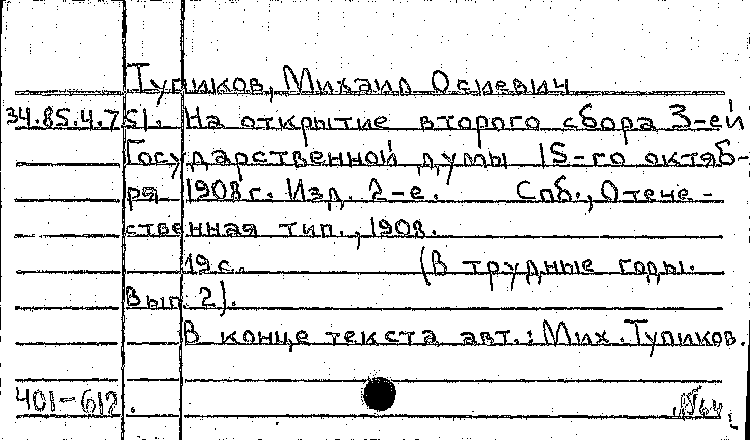 Тупиков, Михаил Осиевич
34.85.4.751. На открытие второго сбора 3-ей
Государственной думы 15-го октяб-
ря 1908 г. Изд. 2-е. Спб., Отече-
ственная тип., 1908.
19 с. (В трудные годы.
Вып. 2).
В конце текста авт.: Мих. Тупиков.
401-612.